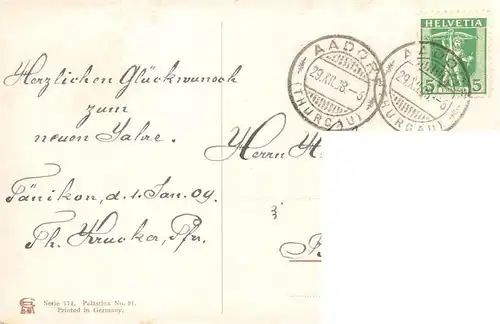 Herzlichen Glückwunsch
zum
neuen Jahre.
Tänikon, d. 1. Jan. 09.
Th. Krucker, Pfr.
Serie 754. Palatina No. 91.
Printed in Germany.
HELVETIA
5
AADORF
29.XII.08.-6
(THURGAU)
AADORF
29.XII.08.-6
(THURGAU)
Herrn